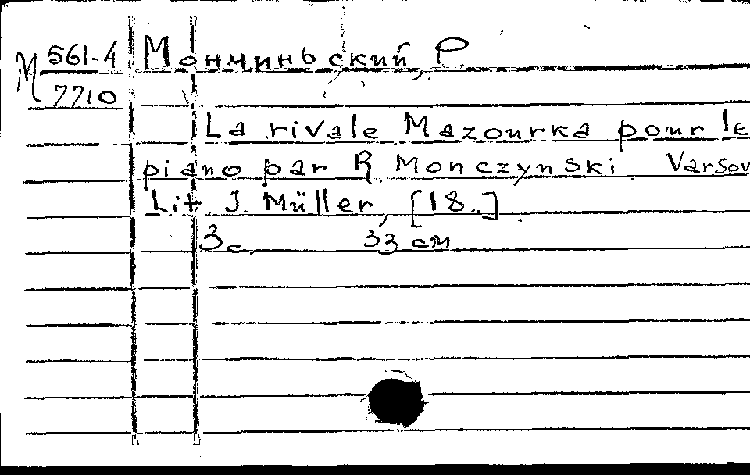 М 561-4 Мончиньский, Р.
7710
La rivale Mazourka pour le
piano par R. Monczynski Varsov
Lit J. Müller, [18..]
3 с. 33 см